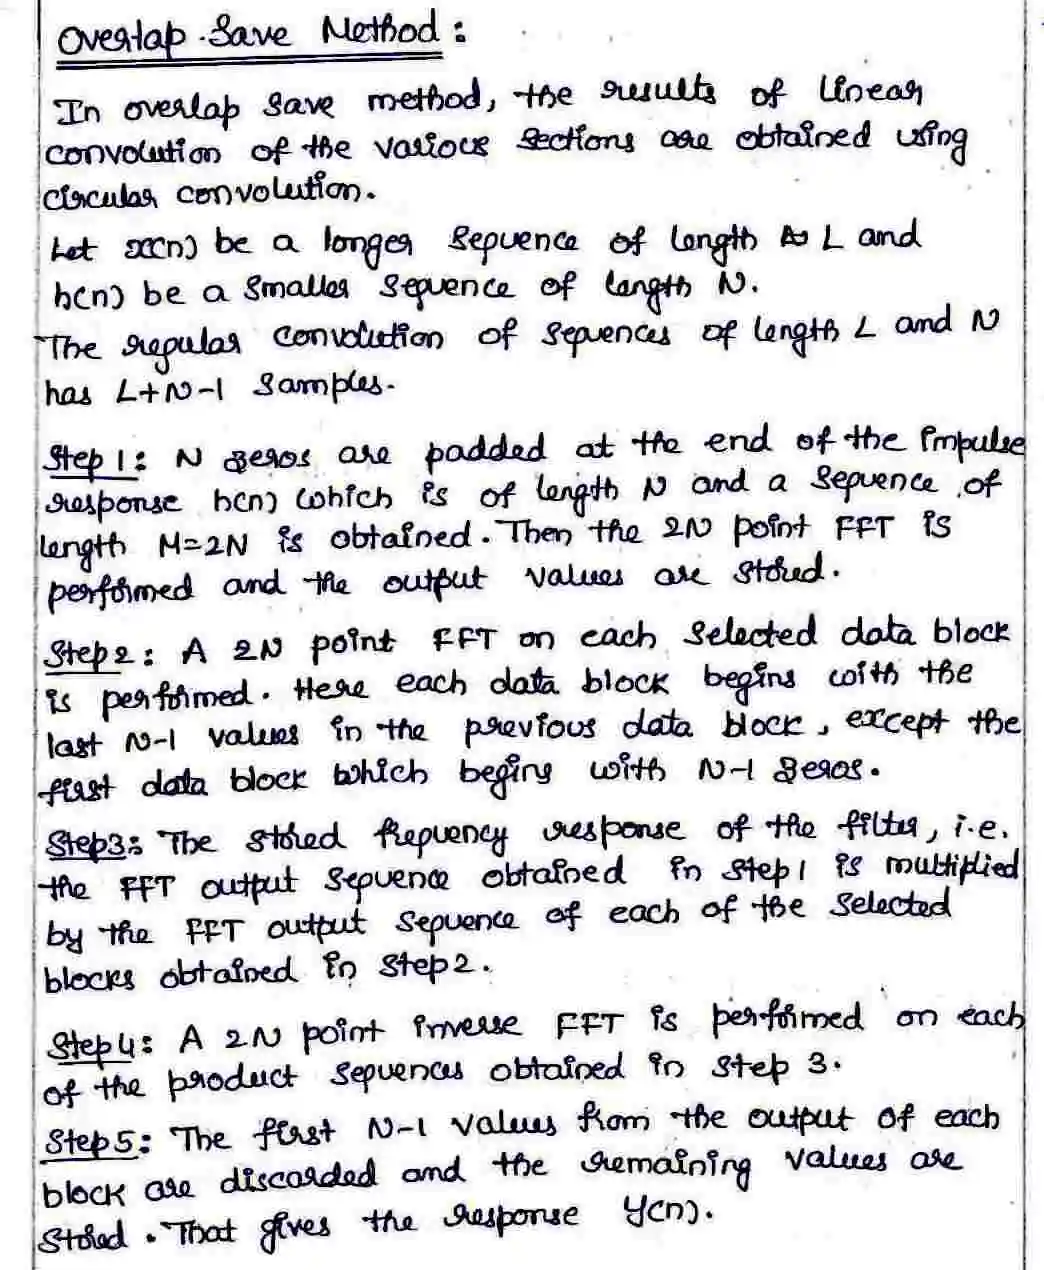 Overlap-Save Method :
In overlap save method, the results of linear
convolution of the various sections are obtained using
circular convolution.
Let x(n) be a longer sequence of length L and
h(n) be a smaller sequence of length N.
The regular convolution of sequences of length L and N
has L+N-1 samples.
Step 1: N zeros are padded at the end of the impulse
response h(n) which is of length N and a sequence of
length M=2N is obtained. Then the 2N point FFT is
performed and the output values are stored.
Step2: A 2N point FFT on each selected data block
is performed. Here each data block begins with the
last N-1 values in the previous data block, except the
first data block which begins with N-1 zeros.
Step3: The stored frequency response of the filter, i.e.
the FFT output sequence obtained in step1 is multiplied
by the FFT output sequence of each of the selected
blocks obtained in step2.
Step4: A 2N point inverse FFT is performed on each
of the product sequences obtained in step 3.
Step5: The first N-1 values from the output of each
block are discarded and the remaining values are
stored. That gives the response y(n).